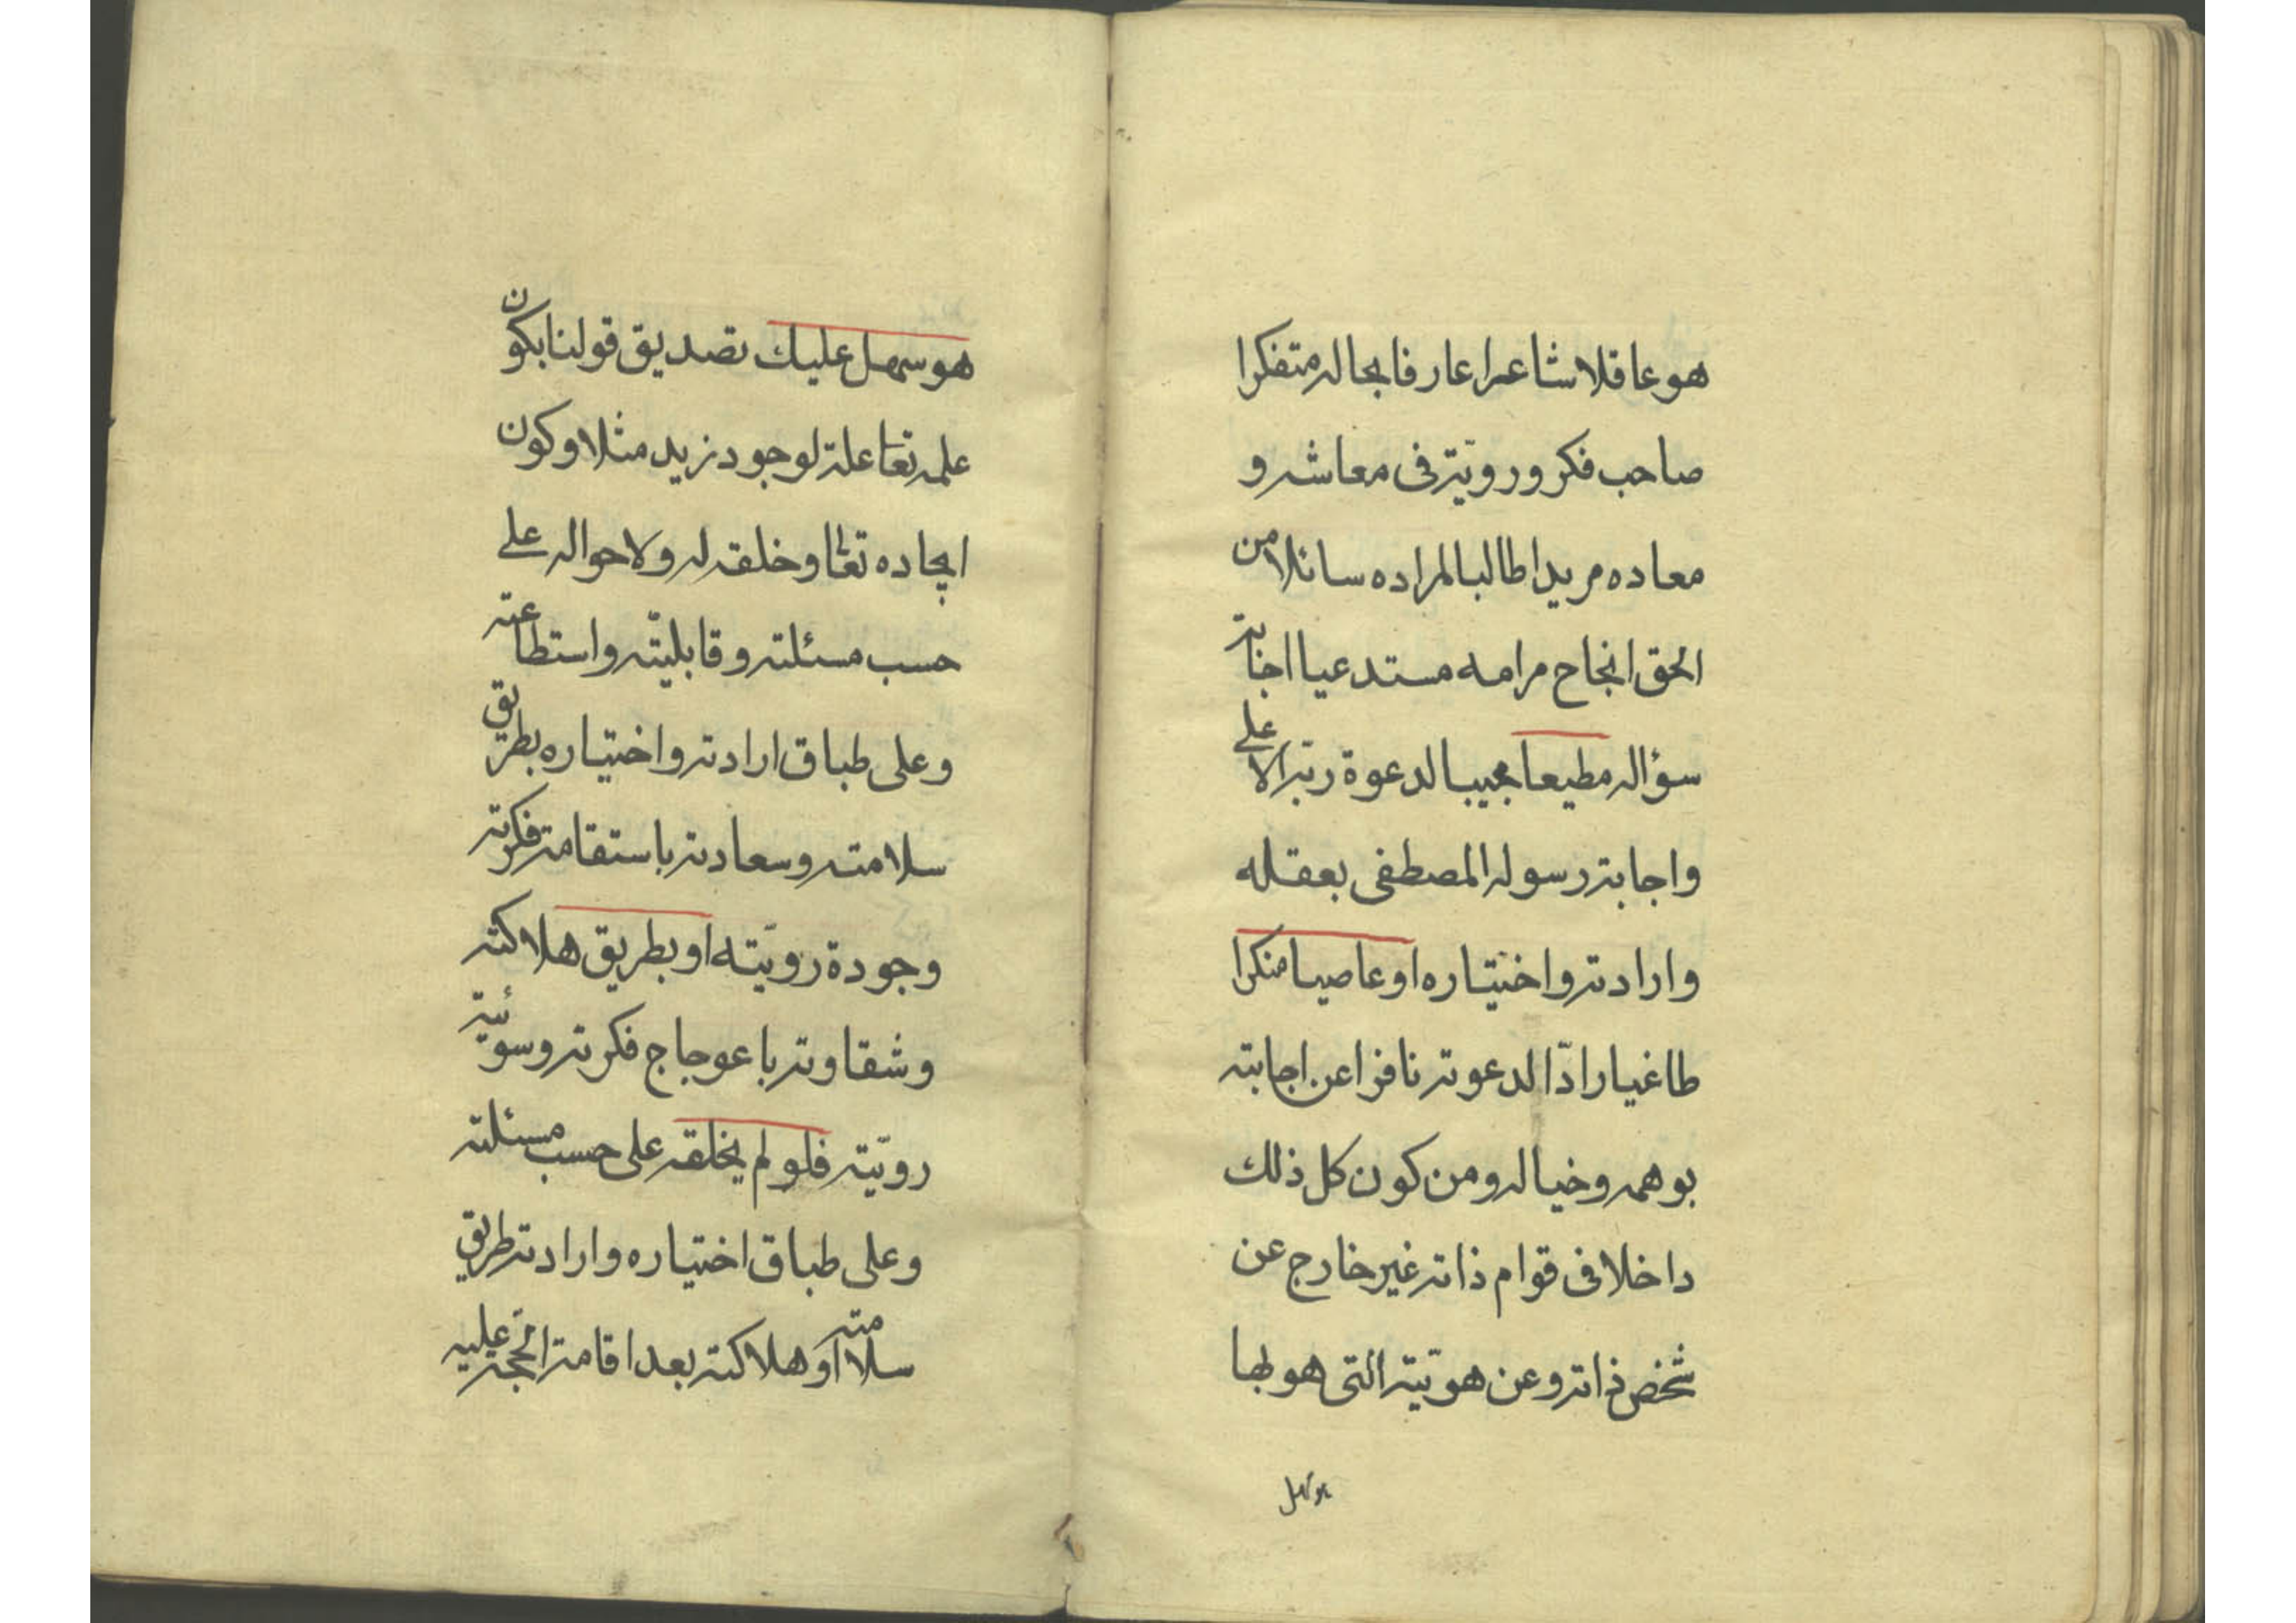 هو عاقلا شاعرا عارفا بحاله متفكرا
صاحب فكر ورويّة فى معاشه و
معاده مريدا طالبا لمراده سائلا من
الحق انجاح مرامه مستدعيا اجابة
سؤاله مطيعا مجيبا لدعوة ربه الاعلى
واجابة رسوله المصطفى بعقله
وارادته واختياره او عاصيا منكرا
طاغيا رادّا لدعوته نافرا عن اجابته
بوهمه وخياله ومن كون كل ذلك
داخلا فى قوام ذاته غير خارج عن
شخص ذاته وعن هويّته التى هو بها
هو سهل
هو سهل عليك تصديق قولنا بكون
علمه تعا علة لوجود زيد مثلا وكون
ايجاده تعالى وخلقه له ولاحواله على
حسب مسئلته وقابليّته واستطاعته
وعلى طباق ارادته واختياره بطريق
سلامته وسعادته باستقامة فكرته
وجودة رويّته او بطريق هلاكته
وشقاوته باعوجاج فكرته وسوئية
رويّته فلو لم يخلقه على حسب مسئلته
وعلى طباق اختياره وارادته طريق
سلامته او هلاكته بعد اقامة الحجة عليه